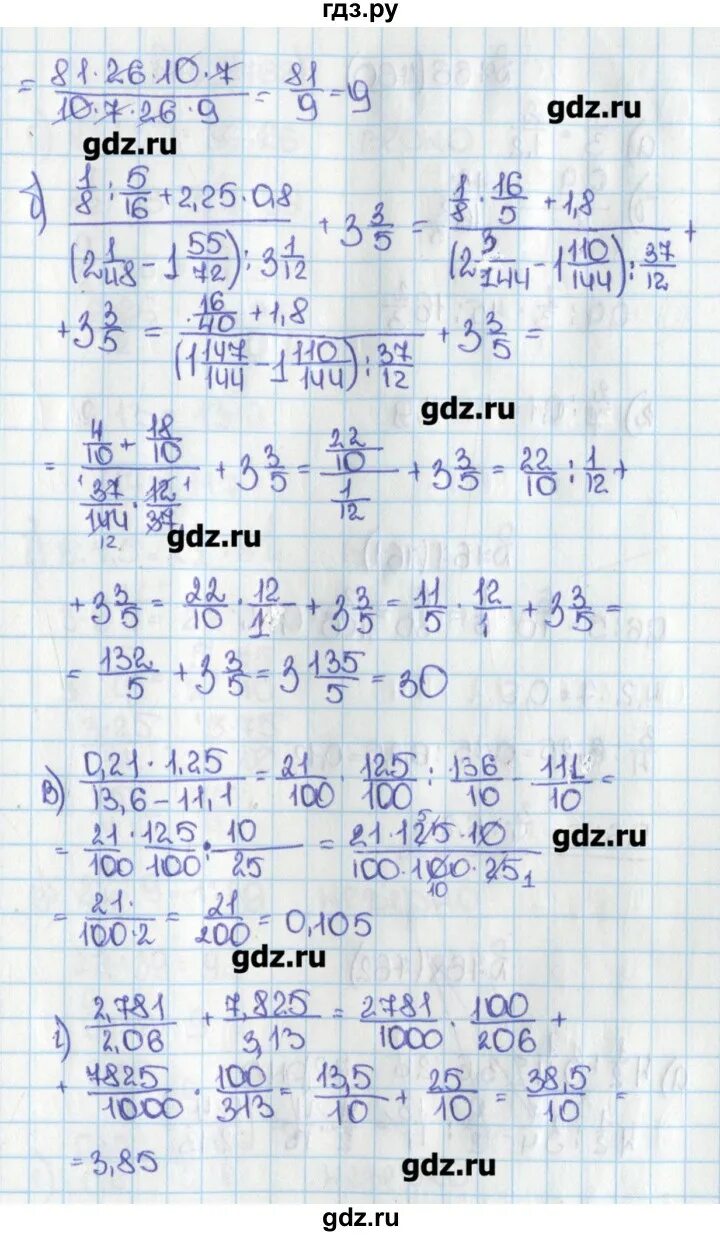 гдз.ру
= (81·26·10·7)/(10·7·26·9) = 81/9 = 9
gdz.ru
gdz.ru
б) (1/8 : 5/16 + 2,25·0,8)/((2 1/48 - 1 55/72) : 3 1/12) + 3 3/5 = (1/8 · 16/5 + 1,8)/((2 3/144 - 1 110/144) : 37/12) +
+ 3 3/5 = (16/40 + 1,8)/((1 147/144 - 1 110/144) : 37/12) + 3 3/5 =
gdz.ru
= (4/10 + 18/10)/(37/144 · 12/37) + 3 3/5 = (22/10)/(1/12) + 3 3/5 = 22/10 : 1/12 +
gdz.ru
+ 3 3/5 = 22/10 · 12/1 + 3 3/5 = 11/5 · 12/1 + 3 3/5 =
= 132/5 + 3 3/5 = 3 135/5 = 30
в) (0,21·1,25)/(13,6-11,1) = 21/100 · 125/100 : 136/10 - 111/10 =
gdz.ru
= 21/100 · 125/100 : 10/25 = (21·125·10)/(100·100·25) =
= 21·/(100·2) = 21/200 = 0,105
gdz.ru
г) 2,781/2,06 + 7,825/3,13 = 2781/1000 · 100/206 +
+ 7825/1000 · 100/313 = 13,5/10 + 25/10 = 38,5/10 =
= 3,85
gdz.ru
gdz.ru